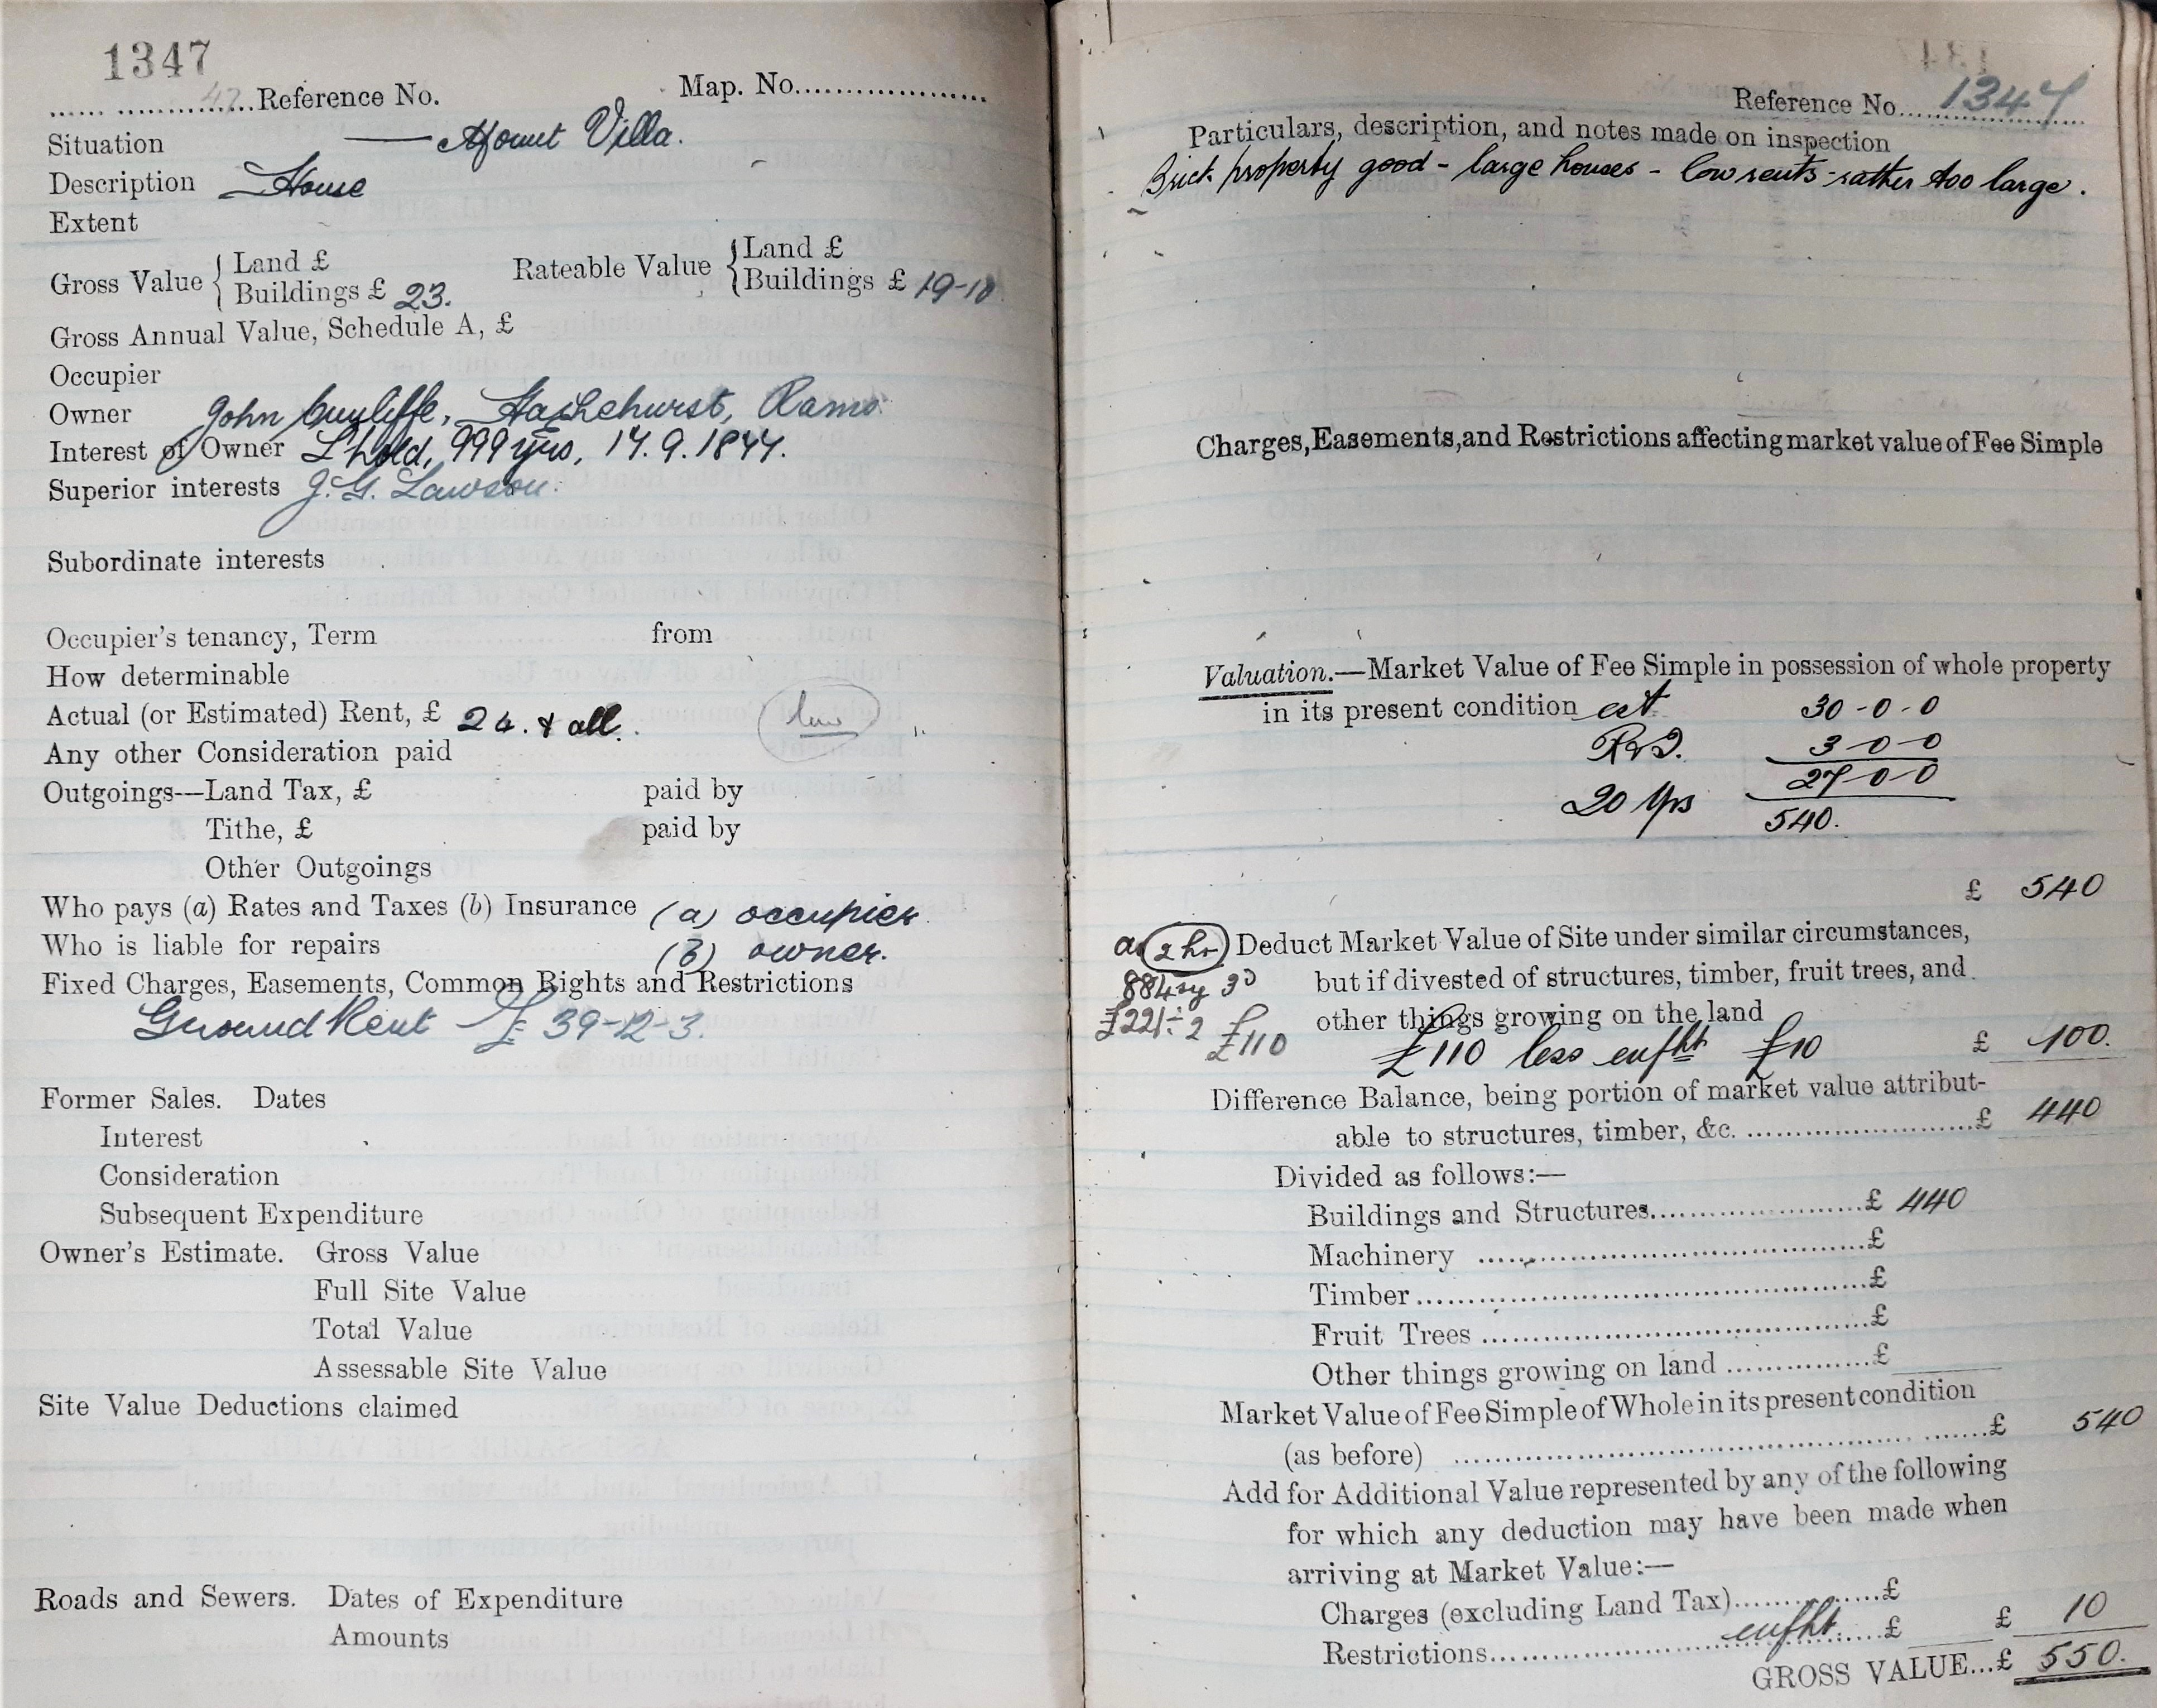 1347
...... ...............Reference No. Map. No.....................
Situation — Mount Villa.
Description House
Extent
Gross Value { Land £ Rateable Value { Land £
Buildings £ 23. Buildings £ 19-10
Gross Annual Value, Schedule A, £
Occupier
Owner John Cunliffe, Hazlehurst, Rams.
Interest of Owner L'hold, 999 yrs, 17.9.1844.
Superior interests J. G. Lawson.
Subordinate interests
Occupier's tenancy, Term from
How determinable
Actual (or Estimated) Rent, £ 24. & all. low
Any other Consideration paid
Outgoings—Land Tax, £ paid by
Tithe, £ paid by
Other Outgoings
Who pays (a) Rates and Taxes (b) Insurance (a) occupier
Who is liable for repairs (B) owner.
Fixed Charges, Easements, Common Rights and Restrictions
Ground Rent £ 39-12-3.
Former Sales. Dates
Interest
Consideration
Subsequent Expenditure
Owner's Estimate. Gross Value
Full Site Value
Total Value
Assessable Site Value
Site Value Deductions claimed
Roads and Sewers. Dates of Expenditure
Amounts
Reference No. 1347
Particulars, description, and notes made on inspection
Brick property good - large houses - low rents - rather too large.
Charges, Easements, and Restrictions affecting market value of Fee Simple
Valuation.—Market Value of Fee Simple in possession of whole property
in its present condition est 30-0-0
R&I. 3-0-0
27-0-0
20 yrs 540.
£ 540
a 2 hs Deduct Market Value of Site under similar circumstances,
884 sy but if divested of structures, timber, fruit trees, and
£221÷2 £110 other things growing on the land
£110 less enfht £10 £ 100.
Difference Balance, being portion of market value attribut-
able to structures, timber, &c. ........................£ 440
Divided as follows:—
Buildings and Structures......................£ 440
Machinery ......................................£
Timber.............................................£
Fruit Trees .......................................£
Other things growing on land ...............£
Market Value of Fee Simple of Whole in its present condition
(as before) ...................................................£ 540
Add for Additional Value represented by any of the following
for which any deduction may have been made when
arriving at Market Value:—
Charges (excluding Land Tax)...............£
Restrictions..................enfht......£ £ 10
GROSS VALUE...£ 550.